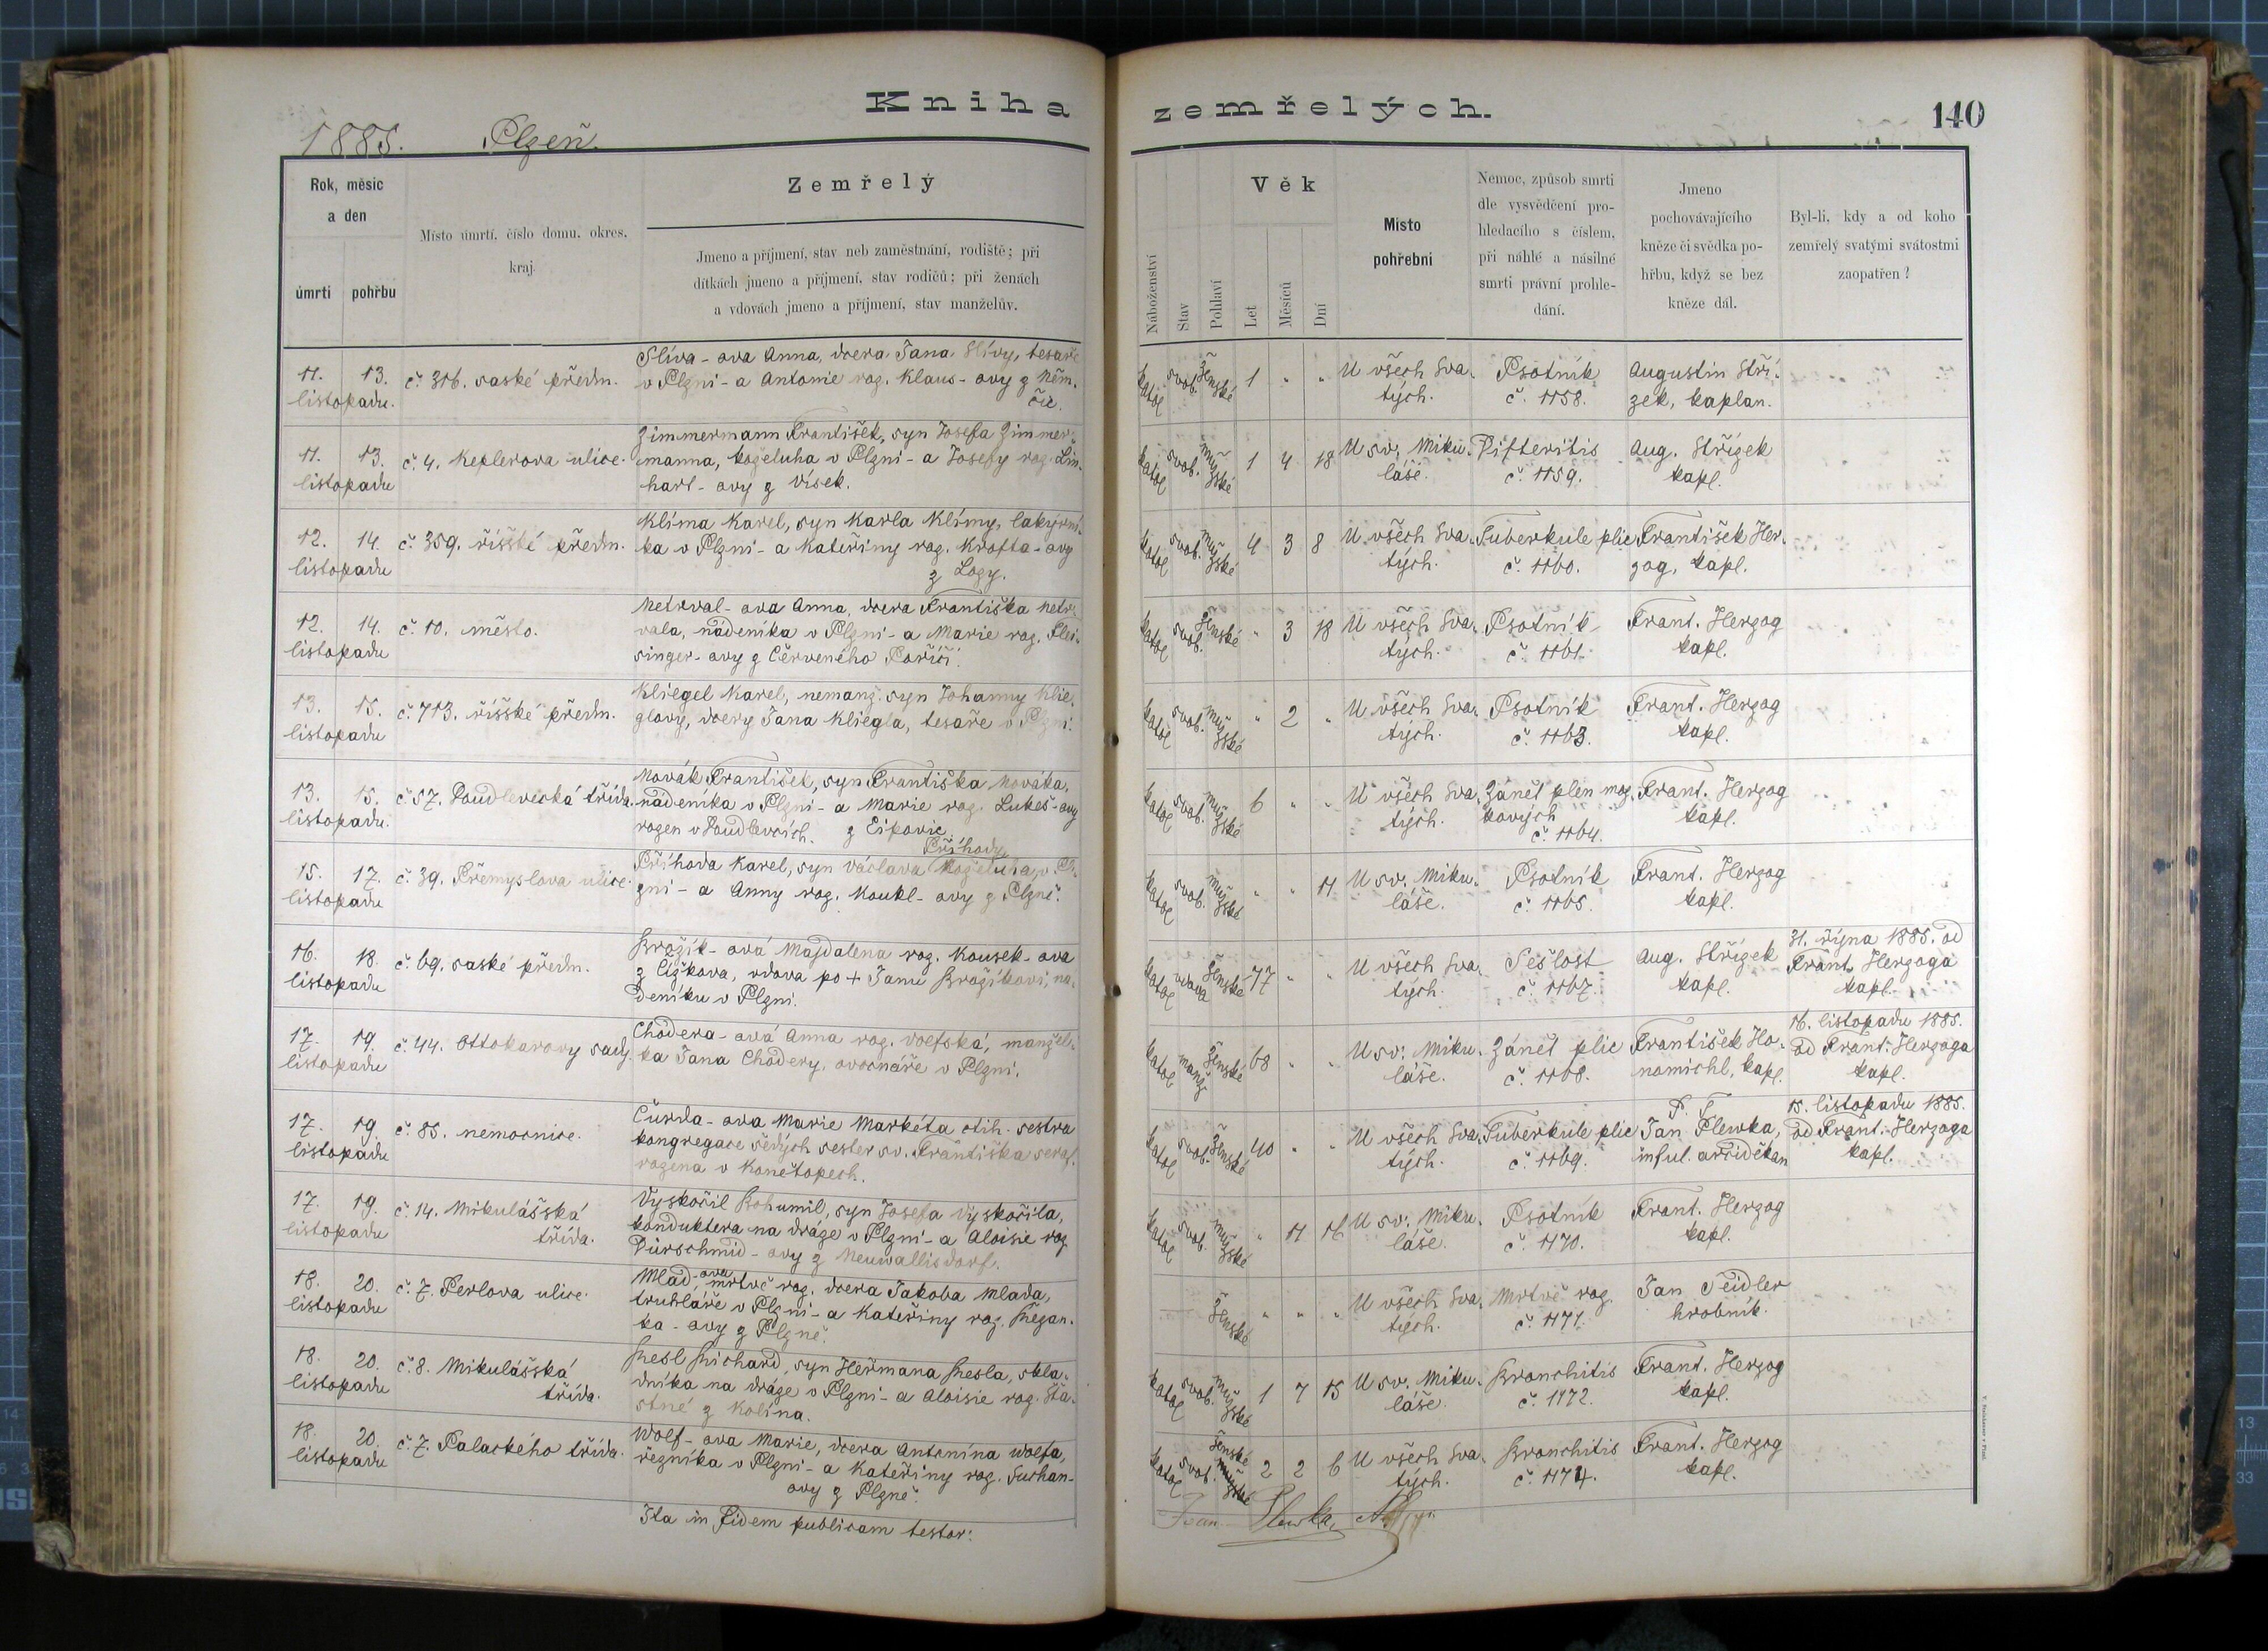 Kniha zemřelých.
140
1885. Plzeň.
Rok, měsíc
a den
úmrtí
pohřbu
Místo úmrtí, číslo domu, okres,
kraj.
Zemřelý
Jmeno a příjmení, stav neb zaměstnání, rodiště; při
dítkách jmeno a příjmení, stav rodičů; při ženách
a vdovách jmeno a příjmení, stav manželův.
Náboženství
Stav
Pohlaví
Věk
Let
Měsíců
Dní
Místo
pohřební
Nemoc, způsob smrti
dle vysvědčení pro-
hledacího s číslem,
při náhlé a násilné
smrti právní prohle-
dání.
Jmeno
pochovávajícího
kněze či svědka po-
hřbu, když se bez
kněze dál.
Byl-li, kdy a od koho
zemřelý svatými svátostmi
zaopatřen?
11. 13.
listopadu.
č. 316. saské předm.
Slíva-ova Anna, dcera Jana Slívy, tesaře
v Plzni - a Antonie roz. Klaus-ovy z Něm.
čic.
katol svob. ženské 1 " "
U všech Sva-
tých.
Psotník
č. 1158.
Augustin Stří-
zek, kaplan.
11. 13.
listopadu
č. 4. Keplerova ulice.
Zimmermann František, syn Josefa Zimmer-
manna, koželuha v Plzni - a Josefy roz. Lin-
hart-ovy z Vísek.
katol svob. mužské 1 4 18
U sv. Miku-
láše.
Difteritis
č. 1159.
Aug. Střízek
kapl.
12. 14.
listopadu
č. 359. říšské předm.
Klíma Karel, syn Karla Klímy, lakýrní-
ka v Plzni - a Kateřiny roz. Krofta-ovy
z Lozy.
katol svob. mužské 4 3 8
U všech Sva-
tých.
Tuberkule plic
č. 1160.
František Her-
zog, kapl.
12. 14.
listopadu
č. 10. město.
Netrval-ova Anna, dcera Františka Netr-
vala, nádeníka v Plzni - a Marie roz. Flei-
singer-ovy z Červeného Poříčí.
svob. ženské " 3 18
U všech Sva-
tých.
Psotník
č. 1161.
Frant. Herzog
kapl.
13. 15.
listopadu
č. 713. říšské předm.
Kliegel Karel, nemanž. syn Johanny Klie-
glovy, dcery Jana Kliegla, tesaře v Plzni.
katol svob. mužské " 2 "
U všech Sva-
tých.
Psotník
č. 1163.
Frant. Herzog
kapl.
13. 15.
listopadu.
č. 57. Doudlevecká třída.
Novák František, syn Františka Nováka,
nádeníka v Plzni - a Marie roz. Lukeš-ovy
rozen v Doudlevcích. z Ejpovic.
katol svob. mužské 6 " "
U všech Sva-
tých.
Zánět plen moz-
kových
č. 1164.
Frant. Herzog
kapl.
15. 17.
listopadu
č. 39. Přemyslova ulice.
Příhody
Příhoda Karel, syn Václava koželuha, v Pl-
zni - a Anny roz. Koukl-ovy z Plzně.
katol svob. mužské " " 11
U sv. Miku-
láše.
Psotník
č. 1165.
Frant. Herzog
kapl.
16. 18.
listopadu
č. 69. saské předm.
Brožík-ová Majdalena roz. Kousek-ova
z Čižkova, vdova po + Janu Brožíkovi, ná-
deníku v Plzni.
katol vdova ženské 77 " "
U všech Sva-
tých.
Sešlost
č. 1167.
Aug. Střízek
kapl.
31. října 1885. od
Frant. Herzoga
kapl.
17. 19.
listopadu
č. 44. Ottokarovy sady.
Chodera-ová Anna roz. Volfská, manžel-
ka Jana Chodery, ovocnáře v Plzni.
katol manž. ženské 68 " "
U sv. Miku-
láše.
Zánět plic
č. 1168.
František Ho-
namichl, kapl.
16. listopadu 1885.
od Frant. Herzoga
kapl.
17. 19.
listopadu
č. 85. nemocnice.
Čurda-ova Marie Markéta ctih. sestra
kongregace šedých sester sv. Františka seraf.
rozena v Konětopech.
katol svob. ženské 40 " "
U všech Sva-
tých.
Tuberkule plic
č. 1169.
P. T.
Jan Plewka,
inful. arciděkan
15. listopadu 1885.
od Frant. Herzoga
kapl.
17. 19.
listopadu
č. 14. Mikulášská
třída.
Vyskočil Bohumil, syn Josefa Vyskočila,
konduktera na dráze v Plzni - a Aloisie roz.
Dürschmid-ovy z Neuwallisdorf.
katol svob. mužské " 11 16
U sv. Miku-
láše.
Psotník
č. 1170.
Frant. Herzog
kapl.
18. 20.
listopadu
č. 7. Perlova ulice.
Mlad-ova, mrtvě roz. dcera Jakoba Mlada,
truhláře v Plzni - a Kateřiny roz. Řezan-
ka-ovy z Plzně.
ženské " " "
U všech Sva-
tých.
Mrtvě roz.
č. 1171.
Jan Seidler
hrobník.
18. 20.
listopadu
č. 8. Mikulášská
třída.
Resl Richard, syn Heřmana Resla, skla-
dníka na dráze v Plzni - a Aloisie roz. Šťa-
stné z Kolína.
katol svob. mužské 1 7 15
U sv. Miku-
láše.
Bronchitis
č. 1172.
Frant. Herzog
kapl.
18. 20.
listopadu
č. 7. Palackého třída.
Wolf-ova Marie, dcera Antonína Wolfa,
řezníka v Plzni - a Kateřiny roz. Suchan-
ovy z Plzně.
katol svob. ženské mužské 2 2 6
U všech Sva-
tých.
Bronchitis
č. 1174.
Frant. Herzog
kapl.
Ita in fidem publicam testor:
Joan. Plewka,